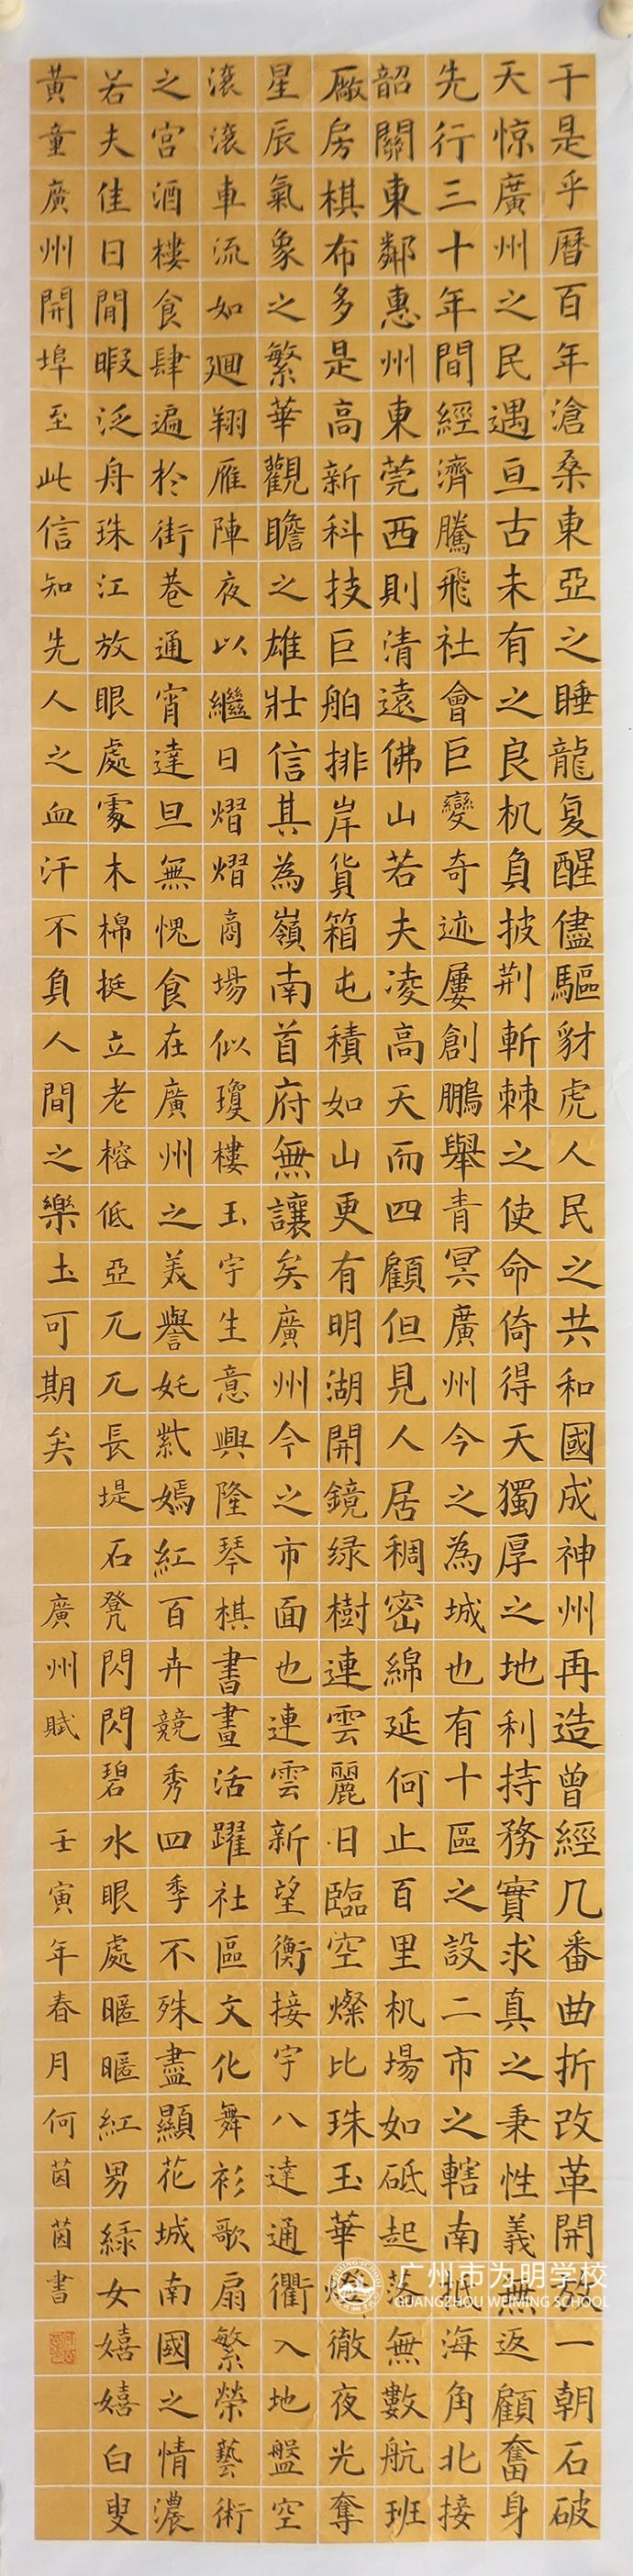 于是乎曆百年滄桑東亞之睡龍复醒儘驅豺虎人民之共和國成神州再造曾經几番曲折改革開放一朝石破
天惊廣州之民遇亘古未有之良机負披荆斬棘之使命倚得天獨厚之地利持務實求真之秉性義無返顧奮身
先行三十年間經濟騰飛社會巨變奇迹屢創鵬舉青冥廣州今之為城也有十區之設二市之轄南抵海角北接
韶關東鄰惠州東莞西則清遠佛山若夫凌高天而四顧但見人居稠密綿延何止百里机場如砥起落無數航班
廠房棋布多是高新科技巨舶排岸貨箱屯積如山更有明湖開鏡绿樹連雲麗日臨空燦比珠玉華燈徹夜光奪
星辰氣象之繁華觀瞻之雄壯信其為嶺南首府無讓矣廣州今之市面也連雲新望衡接宇八達通衢入地盤空
滚滚車流如迴翔雁陣夜以繼日熠熠商場似瓊樓玉宇生意興隆琴棋書畫活躍社區文化舞衫歌扇繁榮藝術
之宮酒樓食肆遍於街巷通宵達旦無愧食在廣州之美譽奼紫嫣紅百卉競秀四季不殊盡顯花城南國之情濃
若夫佳日閒暇泛舟珠江放眼處處木棉挺立老榕低亞兀兀長堤石凳閃閃碧水眼處暱暱紅男綠女嬉嬉白叟
黃童廣州開埠至此信知先人之血汗不負人間之樂土可期矣 廣州賦 壬寅年春月何茵茵書
广州市为明学校
GUANGZHOU WEIMING SCHOOL